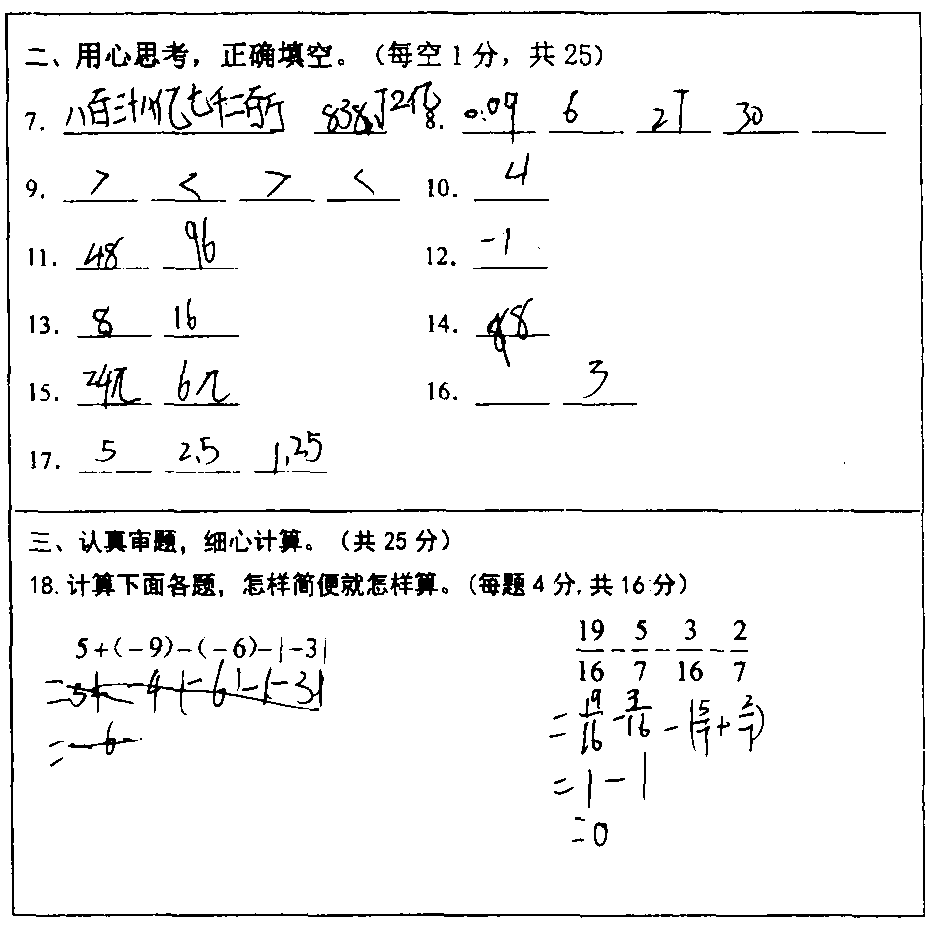 二、用心思考，正确填空。（每空1分，共25）
7. 八百三十八亿七千二百万 838.72亿 8. 0.09 6 27 30
9. > < > < 10. 4
11. 48 96 12. -1
13. 8 16 14. 88
15. 24π 6π 16. 3
17. 5 2.5 1.25
三、认真审题，细心计算。（共25分）
18.计算下面各题，怎样简便就怎样算。（每题4分,共16分）
5+(-9)-(-6)-|-3| 19/16-5/7-3/16-2/7
=19/16-3/16-(5/7+2/7)
=-6
=1-1
=0